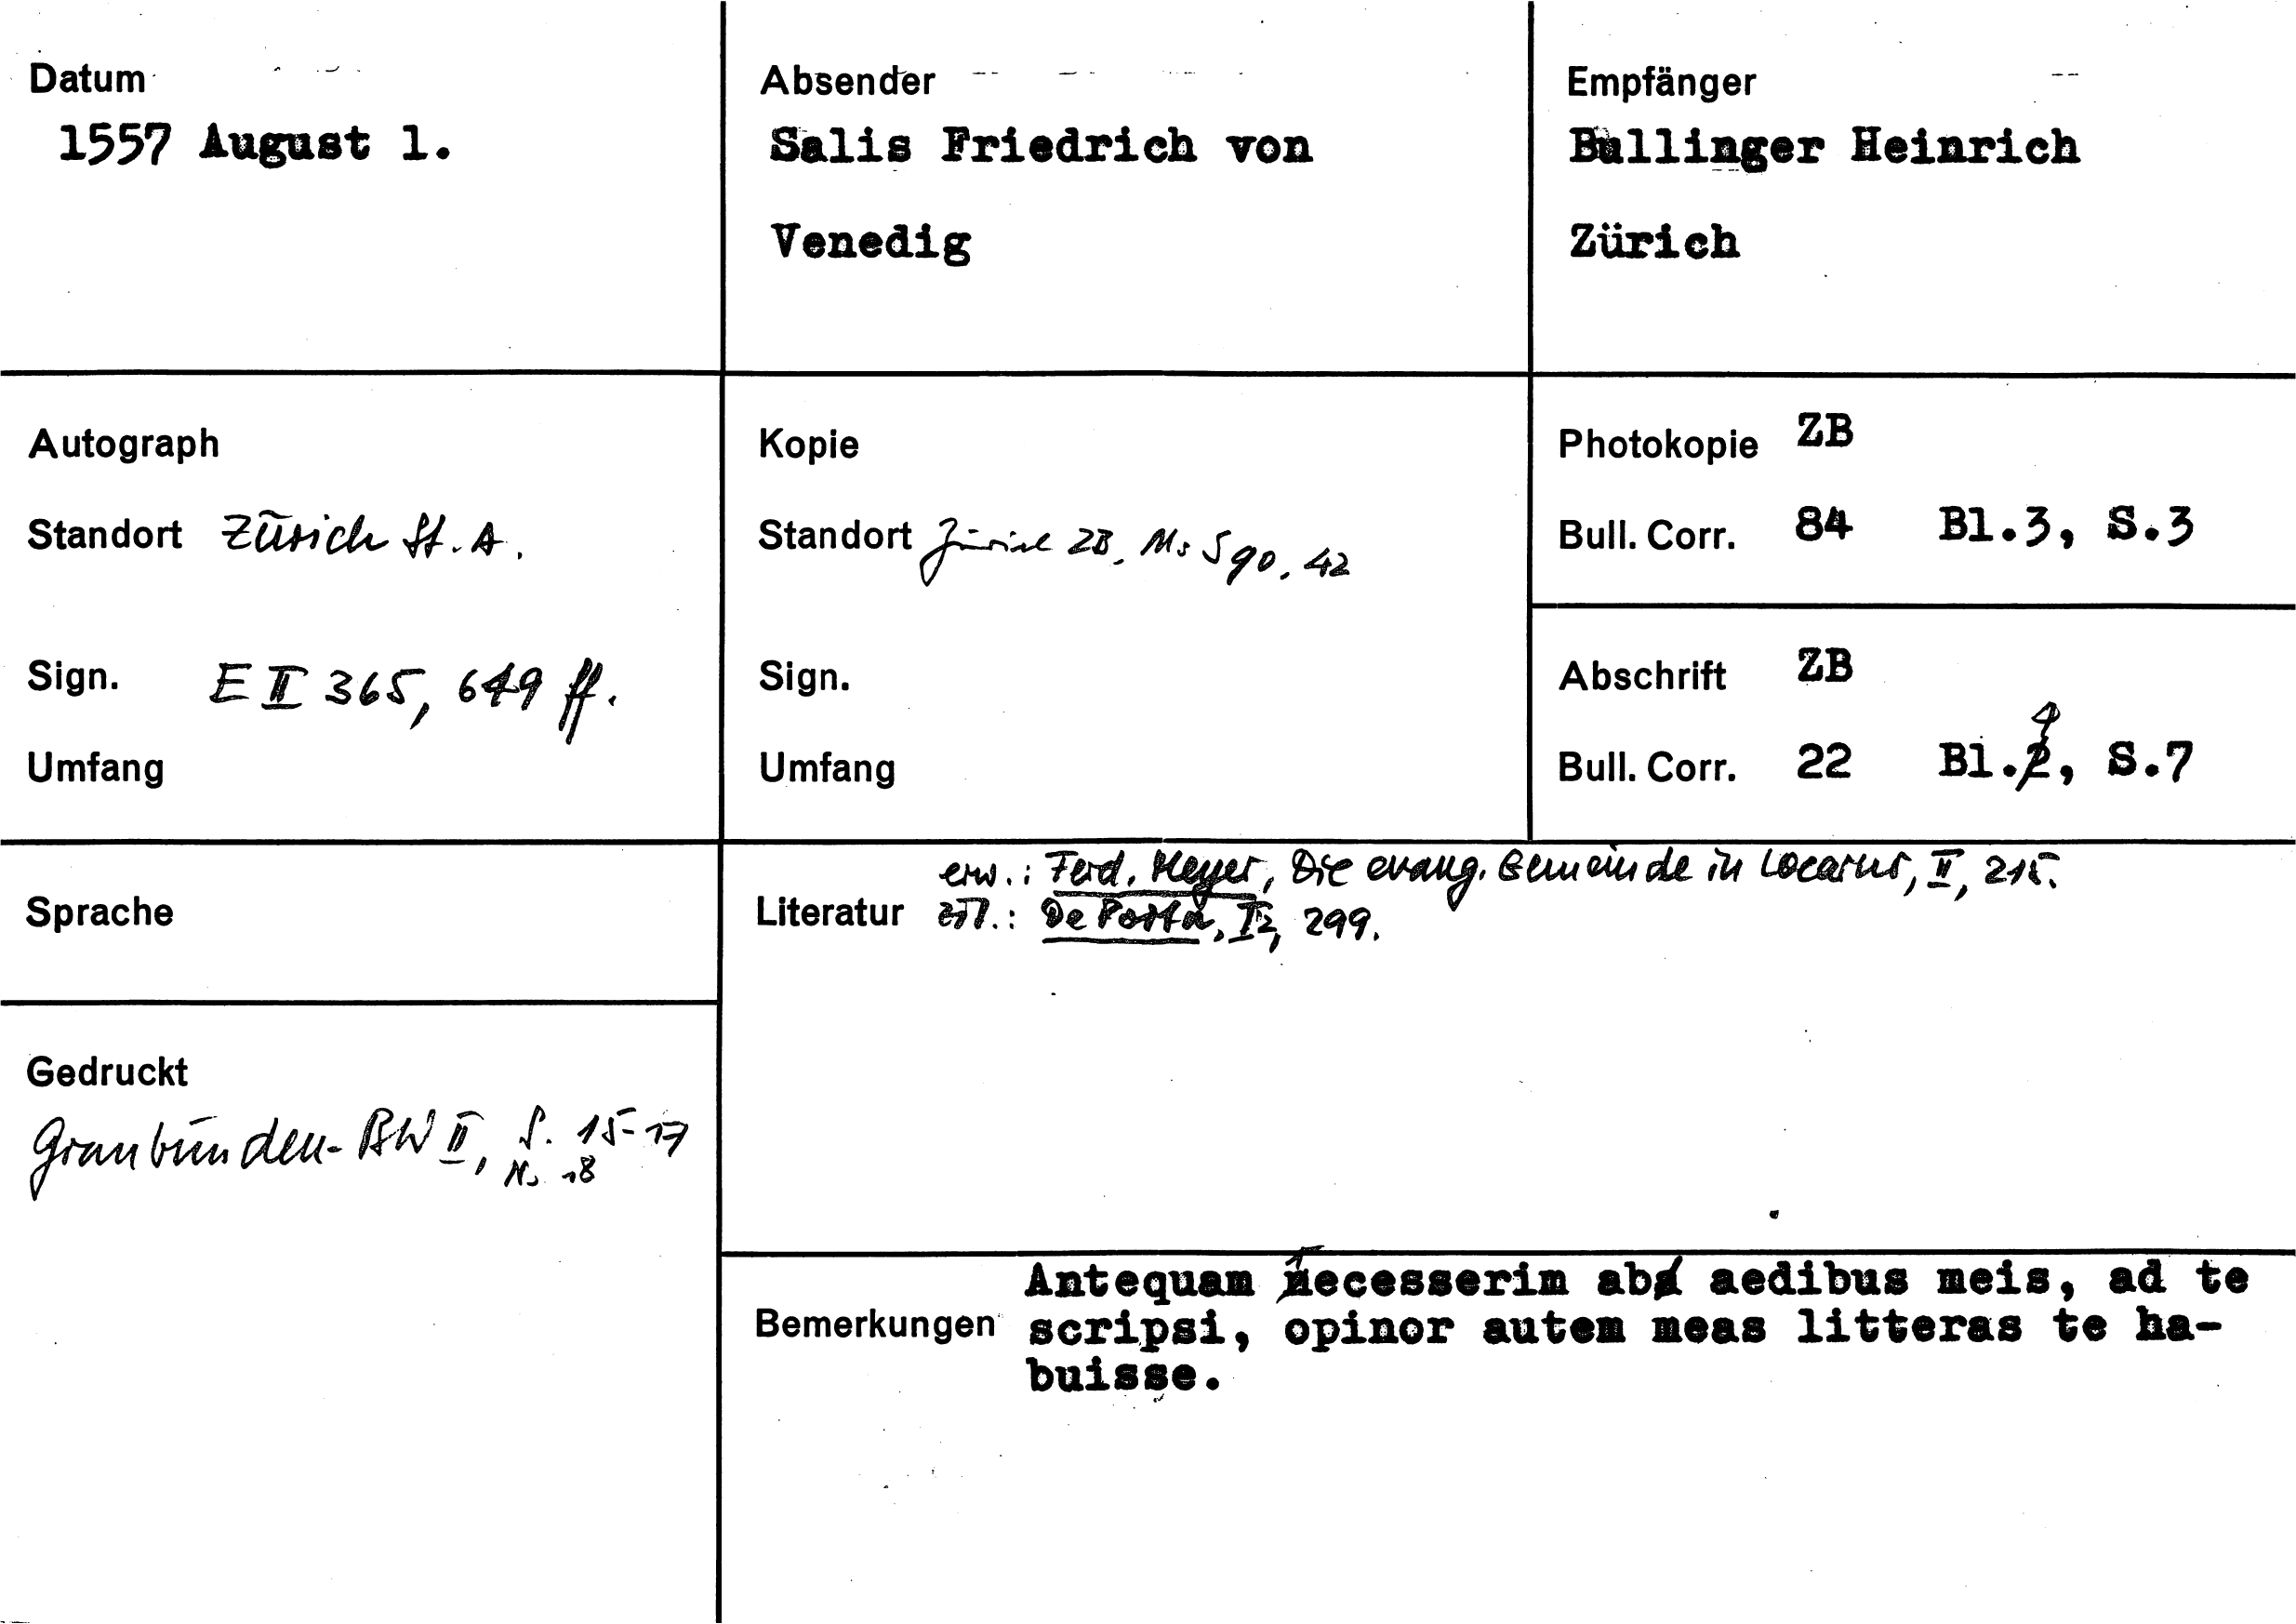 Datum
1557 August 1.
Absender
Salis Friedrich von
Venedig
Empfänger
Bullinger Heinrich
Zürich
Autograph
Standort Zürich St. A.
Sign. E II 365, 649 ff.
Umfang
Kopie
Standort Zürich ZB, Ms S 90, 42
Sign.
Umfang
Photokopie ZB
Bull. Corr. 84 Bl.3, S.3
Abschrift ZB
Bull. Corr. 22 Bl., S.7
Sprache
Gedruckt
Graubünden-BW II, S. 15-17
Nr. 18
erw.: Ferd. Meyer, Die evang. Gemeinde in Locarno, II, 215.
Literatur zit.: De Porta, I2, 299.
Bemerkungen
Antequam recesserim ab aedibus meis, ad te
scripsi, opinor autem meas litteras te ha-
buisse.